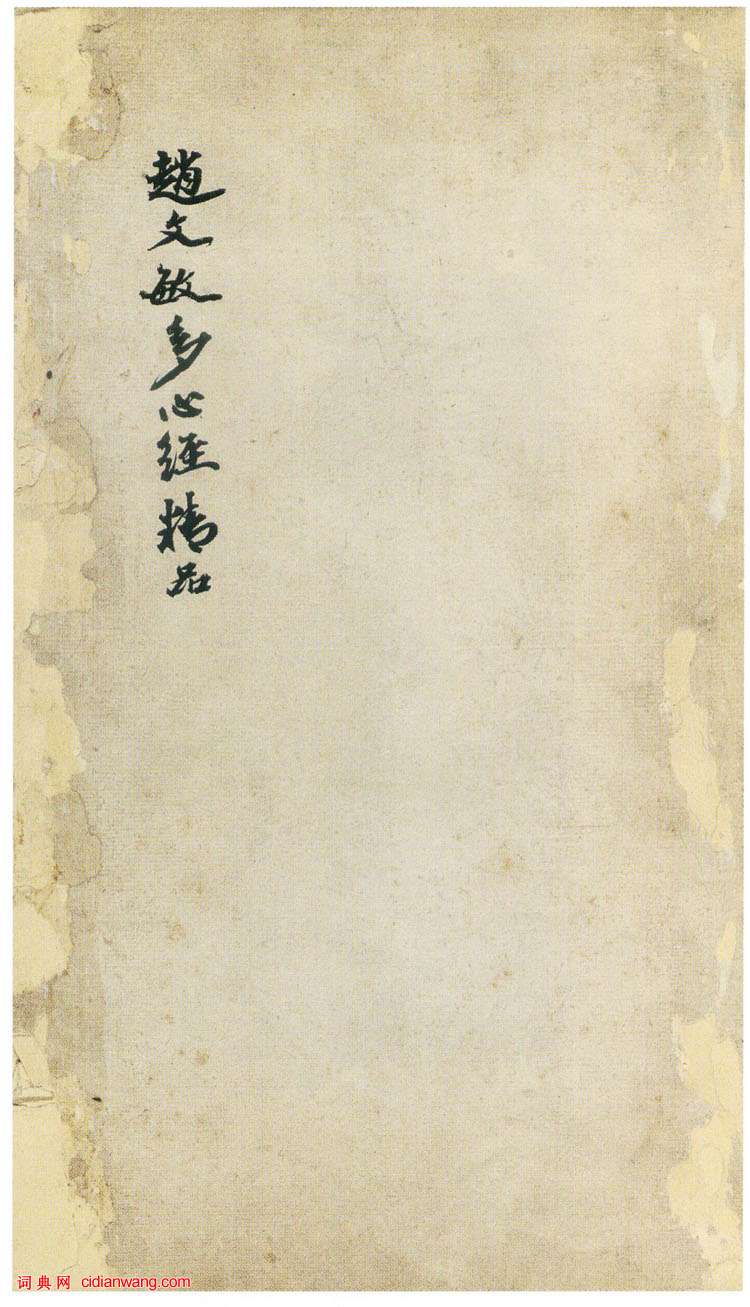 趙文敏多心經精品
词典网 cidianwang.com